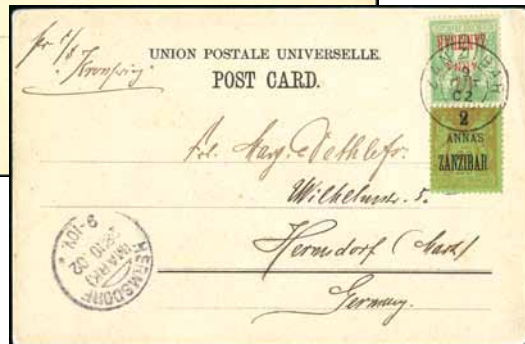 pr s/s
"Kronprinz"
UNION POSTALE UNIVERSELLE.
POST CARD.
ZANZIBAR
2
ANNAS
ZANZIBAR
Frl. Marg. Dethlefs.
Wilhelmstr. 5.
Hermsdorf (Mark)
Germany.
HERMSDORF
(MARK)
28.10.02
9-10V.